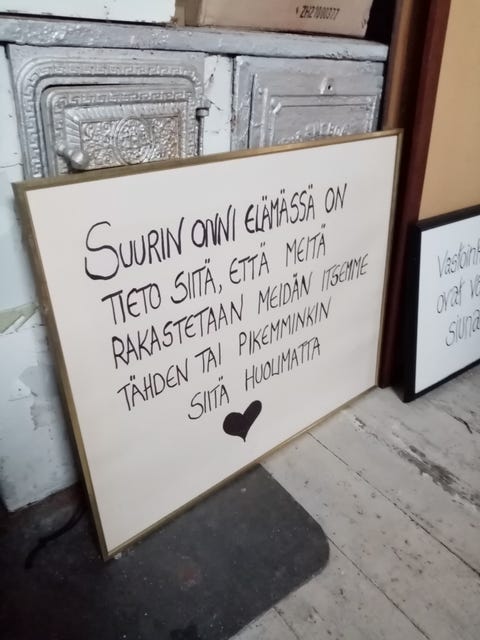 ZHZ1000377
SUURIN ONNI ELÄMÄSSÄ ON
TIETO SIITÄ, ETTÄ MEITÄ
RAKASTETAAN MEIDÄN ITSEMME
TÄHDEN TAI PIKEMMINKIN
SIITÄ HUOLIMATTA
ovat